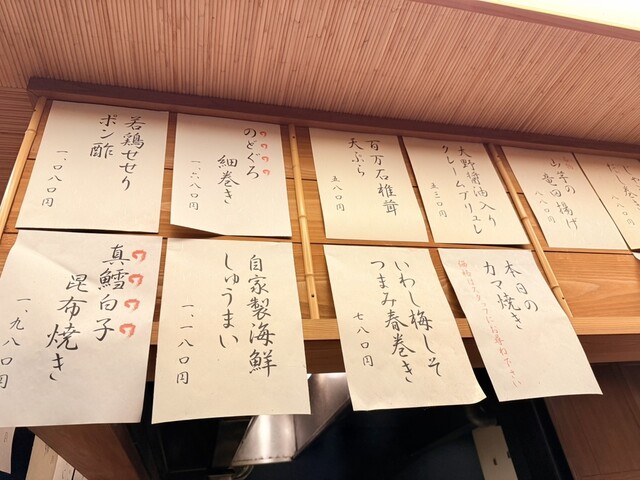 若鶏せせり
ポン酢
一、〇八〇円
のどぐろ
細巻き
一、六八〇円
百万石椎茸
天ぷら
五八〇円
大野醤油入り
クレームブリュレ
五三〇円
の揚げ
八八〇円
真鱈白子
昆布焼き
一、九八〇円
自家製海鮮
しゅうまい
一、一八〇円
いわし梅しそ
つまみ春巻き
七八〇円
本日の
カマ焼き
価格はスタッフにお尋ね下さい